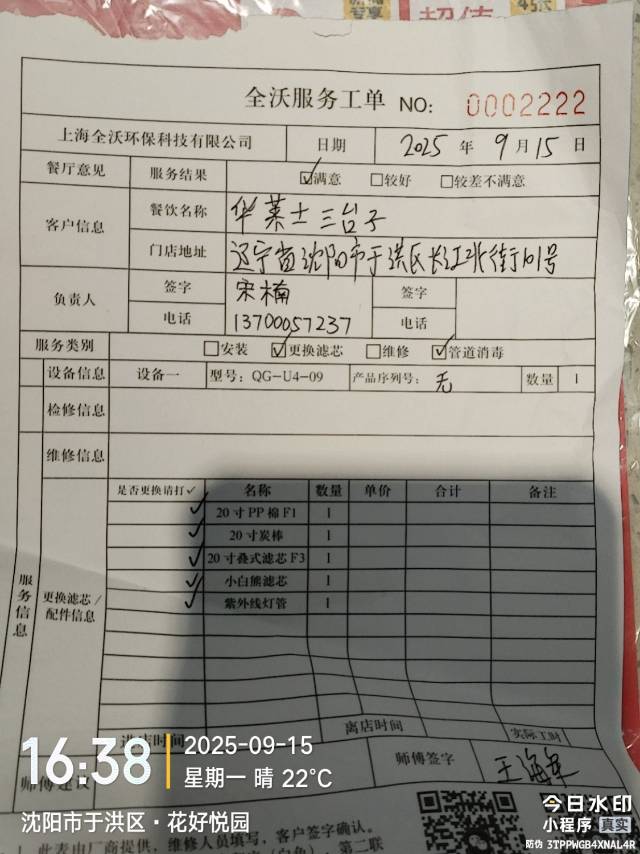 超值
全沃服务工单 NO: 0002222
上海全沃环保科技有限公司 日期 2025 年 9 月 15 日
餐厅意见 服务结果 ☑满意 □较好 □较差不满意
客户信息 餐饮名称 华莱士三台子
门店地址 辽宁省沈阳市于洪区长江北街101号
负责人 签字 宋楠 签字
电话 13700057237 电话
服务类别 □安装 ☑更换滤芯 □维修 ☑管道消毒
设备信息 设备一 型号：QG-U4-09 产品序列号：无 数量 1
检修信息
维修信息
服务信息
更换滤芯/配件信息
是否更换请打✓ 名称 数量 单价 合计 备注
✓ 20寸PP棉F1 1
✓ 20寸炭棒 1
✓ 20寸叠式滤芯F3 1
✓ 小白熊滤芯 1
✓ 紫外线灯管 1
进店时间 离店时间 实际工时
师傅建议 师傅签字 王海
16:38 2025-09-15
星期一 晴 22℃
沈阳市于洪区·花好悦园
1. 此表由厂商提供、维修人员填写，客户签字确认。
第二联
今日水印
小程序 真实
防伪 3TPPWGB4XNAL4R